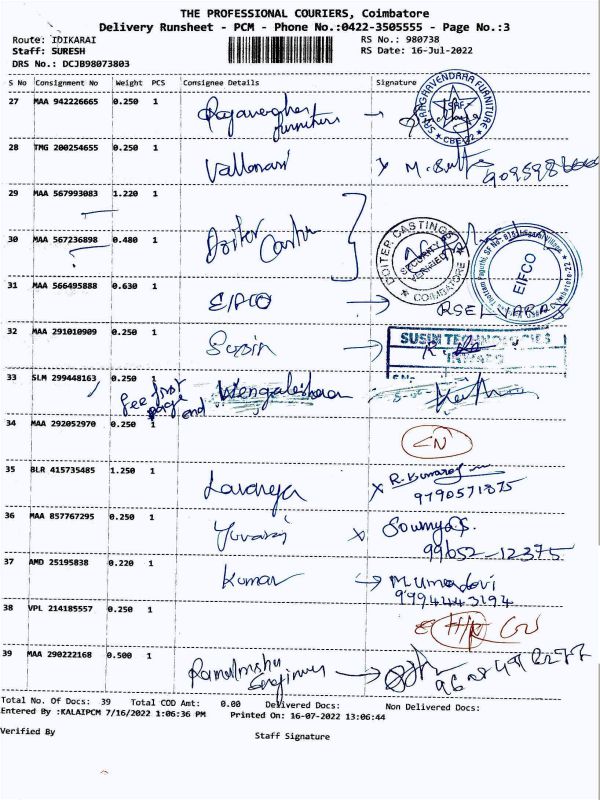 THE PROFESSIONAL COURIERS, Coimbatore
Delivery Runsheet - PCM - Phone No.:0422-3505555 - Page No.:3
Route: IDIKARAI
RS No.: 980738
Staff: SURESH
RS Date: 16-Jul-2022
DRS No.: DCJB98073803
S No Consignment No Weight PCS Consignee Details Signature
27 MAA 942226665 0.250 1
furnitures
SRI RAGRAVENDRAA FURNITURE
28 TMG 200254655 0.250 1
29 MAA 567993083 1.220 1
30 MAA 567236898 0.480 1
?
DOITER CASTINGS
SECURITY VERIFIED
COIMBATORE
31 MAA 566495888 0.630 1 EIFCO
EIFCO
32 MAA 291010909 0.250 1 Susin
SUSIN TECHNOLOGIES
33 SLM 299448163 0.250 1
See first page end
34 MAA 292052970 0.250 1 CN
35 BLR 415735485 1.250 1 Lavanya
X 9790571875
36 MAA 857767295 0.250 1 Yuvaraj
X Sowmya S.
99652-12375
37 AMD 25195838 0.220 1 Kumar
M.Umadevi
9994443194
38 VPL 214185557 0.250 1
39 MAA 290222168 0.500 1
Engineers
Total No. Of Docs: 39 Total COD Amt: 0.00 Delivered Docs: Non Delivered Docs:
Entered By :KALAIPCM 7/16/2022 1:06:36 PM Printed On: 16-07-2022 13:06:44
Verified By
Staff Signature